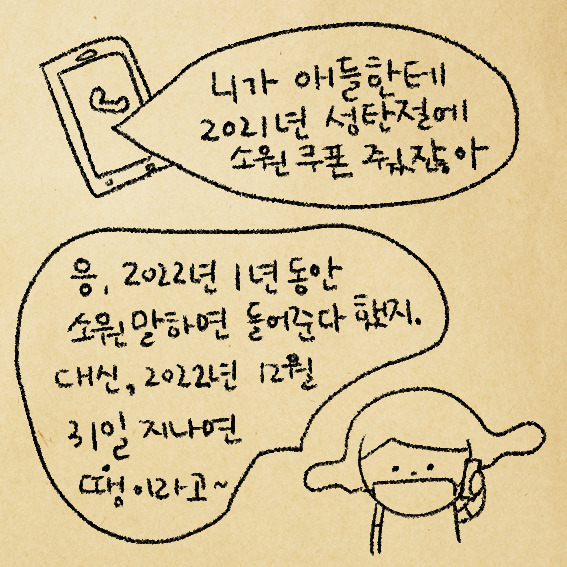 니가 애들한테
2021년 성탄절에
소원 쿠폰 주었잖아
응, 2022년 1년 동안
소원 말하면 들어준다 했지.
대신, 2022년 12월
31일 지나면
땡이라고~